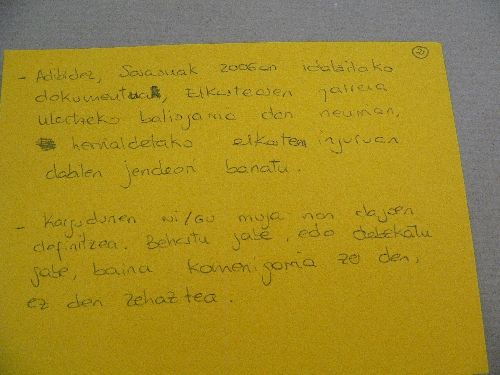 2)
- Adibidez, Sasoiak 2006an idatzitako
dokumentuak, elkartearen jarrera
ulertzeko baliogarria den neurrian,
herrialdetako elkarteen inguruan
dabilen jendean banatu.
- Kargudunen ni/gu muga non dagoen
definitzea. Behartu gabe, edo debekatu
gabe, baina komenigarria ze den,
ez den zehaztea.